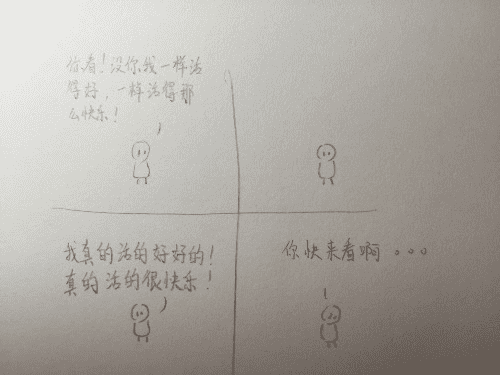 你看！没你我一样活
得好，一样活得那
么快乐！
我真的活的好好的！
真的活的很快乐！
你快来看啊。。。